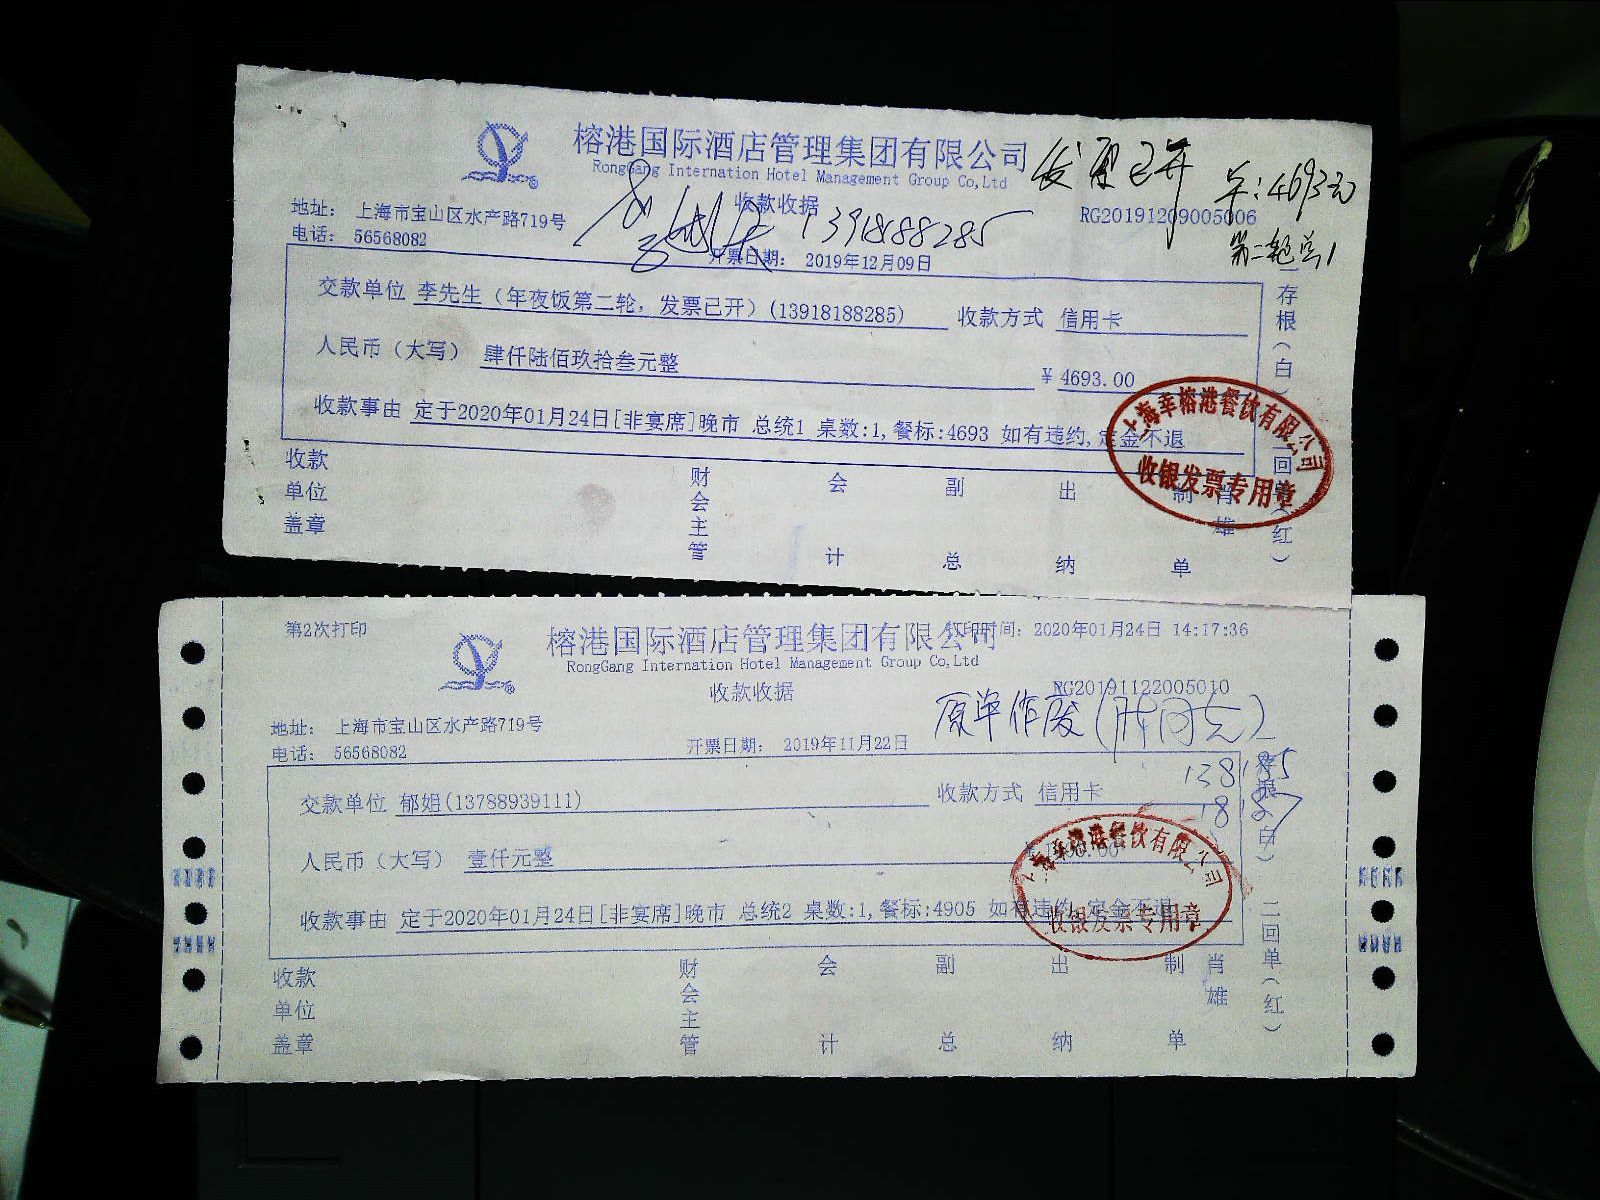 榕港国际酒店管理集团有限公司
RongGang Internation Hotel Management Group Co,Ltd
发票已开 单:4693元
收款收据
RG20191209005006
地址: 上海市宝山区水产路719号
13918188285
第二轮总1
电话: 56568082
开票日期: 2019年12月09日
交款单位 李先生(年夜饭第二轮,发票已开)(13918188285) 收款方式 信用卡
人民币(大写) 肆仟陆佰玖拾叁元整 ¥4693.00
收款事由 定于2020年01月24日[非宴席]晚市 总统1 桌数:1,餐标:4693 如有违约,定金不退
收款单位盖章 财会主管 会计 副总 出纳 制单 肖雄
存根(白) 二回单(红)
上海幸榕港餐饮有限公司
收银发票专用章
第2次打印
榕港国际酒店管理集团有限公司
打印时间: 2020年01月24日 14:17:36
RongGang Internation Hotel Management Group Co,Ltd
收款收据
RG20191122005010
原单作废
地址: 上海市宝山区水产路719号
电话: 56568082
开票日期: 2019年11月22日
交款单位 郁娟(13788939111) 收款方式 信用卡
人民币(大写) 壹仟元整
收款事由 定于2020年01月24日[非宴席]晚市 总统2 桌数:1,餐标:4905 如有违约,定金不退
收款单位盖章 财会主管 会计 副总 出纳 制单 肖雄
存根(白) 二回单(红)
上海幸榕港餐饮有限公司
收银发票专用章